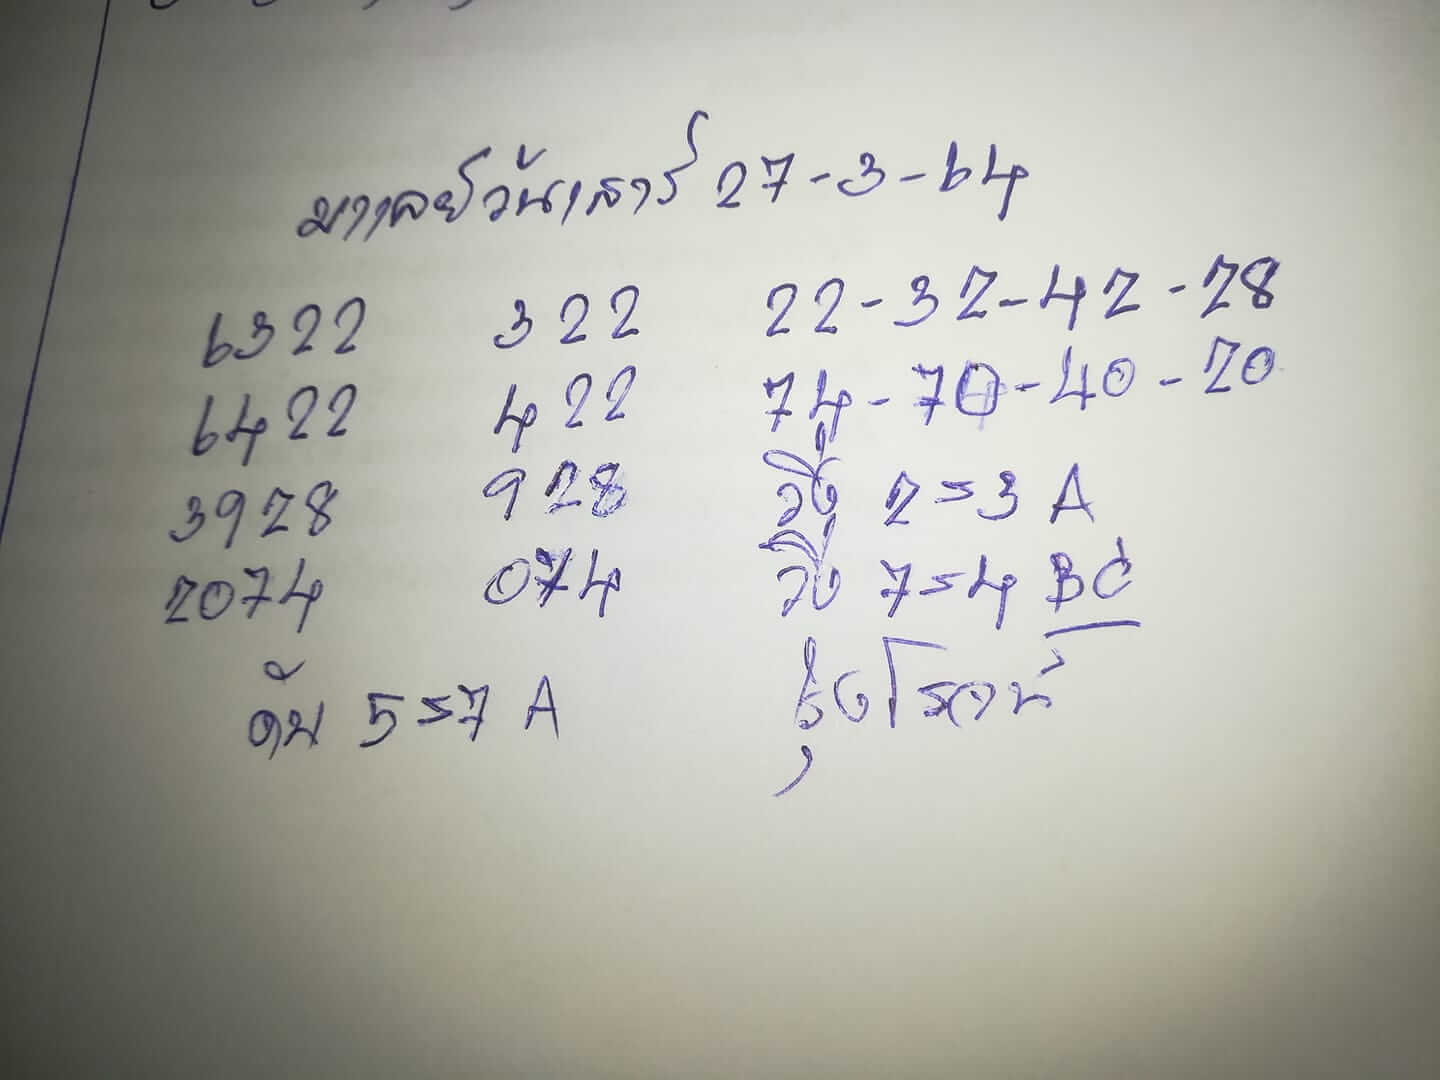 มาเลย์วันเสาร์ 27-3-64
6322 322 22-32-42-28
6422 422 74-70-40-20
3928 928 วิ่ง 2=3 A
2074 074 วิ่ง 7=4 BC
ดับ 5=7 A